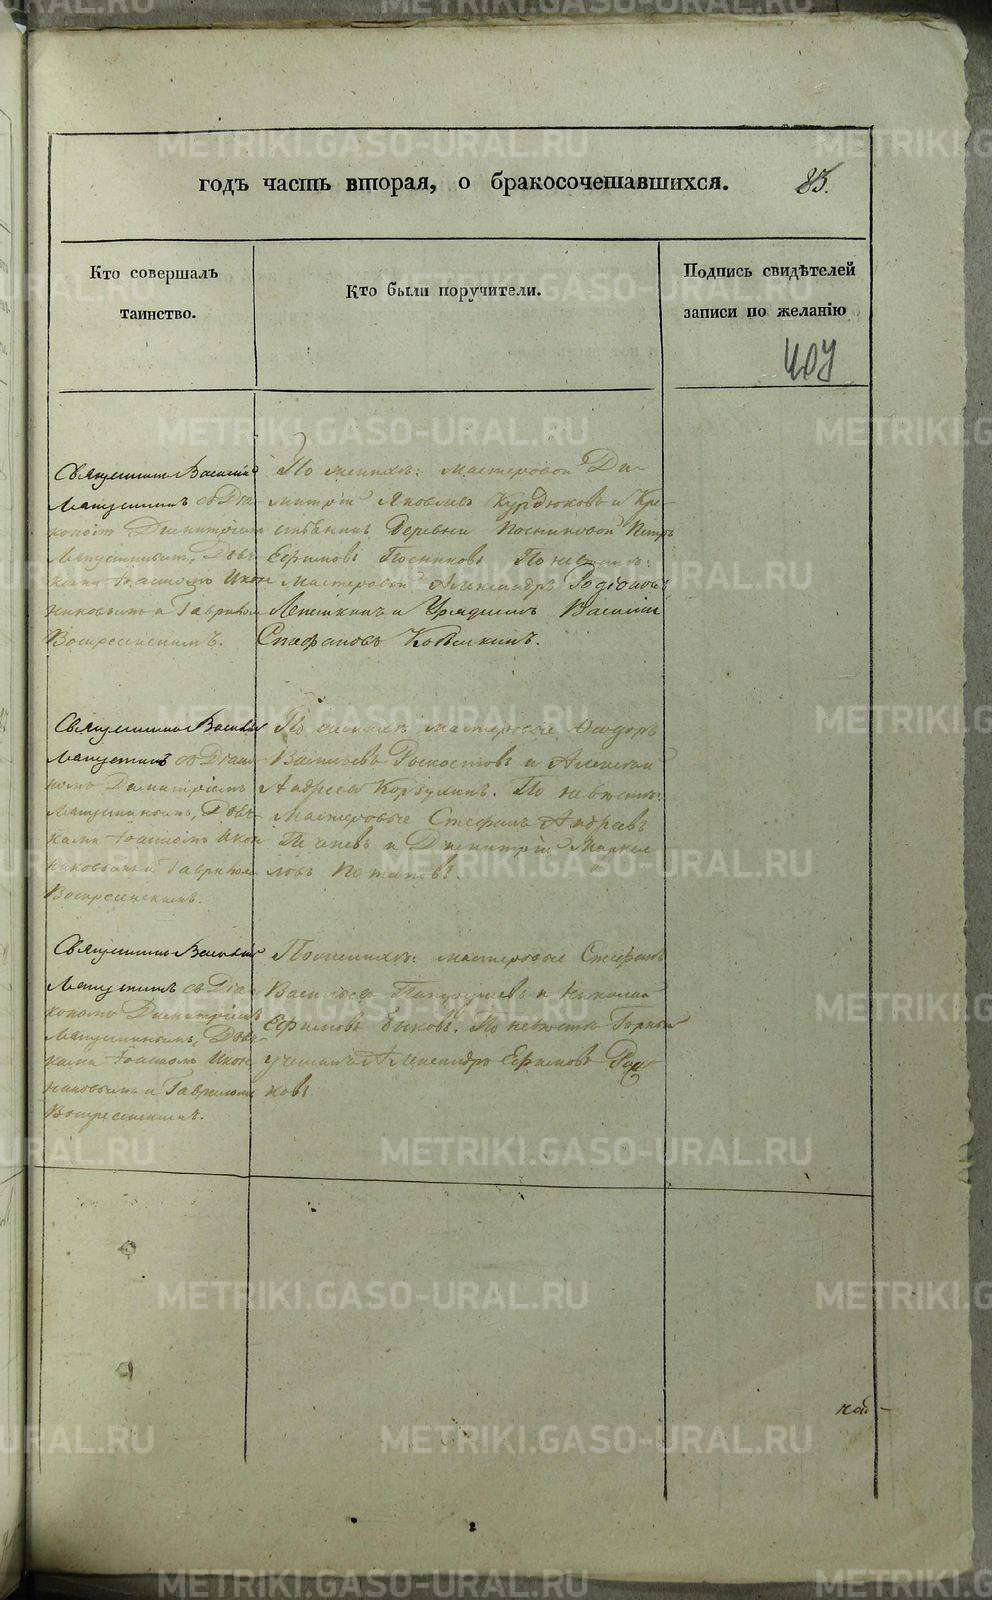 годъ часть вторая, о бракосочетавшихся.
85.
Кто совершалъ
таинство.
Кто были поручители.
Подпись свидѣтелей
записи по желанію
409
Священникъ Василій
Лапустинъ съ Діа-
кономъ Димитріемъ
Лапустинымъ, Дьяч-
ками Іоанномъ Икон
никовымъ и Гавриломъ
Воскресенскимъ.
По женихѣ: мастеровой Ди-
митрій Яковлевъ Курдюковъ и Кре-
стьянинъ Деревни Посниковой Петръ
Ефимовъ Посниковъ По невѣстѣ:
мастеровой Александръ Родіоновъ
и Урядникъ Василій
Стефановъ
Священникъ Василій
Лапустинъ съ Діако-
номъ Димитріемъ
Лапустинымъ, Дьяч-
ками Іоанномъ Икон
никовымъ и Гавриломъ
Воскресенскимъ.
По женихѣ мастеровые Ѳеодоръ
Васильевъ и Алексѣй
Андреевъ Корзунинъ. По невѣстѣ:
Мастеровые Стефанъ Андреевъ
и Димитрій Маркел
ловъ Потаповъ.
Священникъ Василій
Лапустинъ съ Діа-
кономъ Димитріемъ
Лапустинымъ, Дьяч-
ками Іоанномъ Икон
никовымъ и Гавриломъ
Воскресенскимъ.
По женихѣ: мастеровые Стефанъ
Васильевъ и Николай
Ефимовъ Быковъ. По невѣстѣ Горный
ученикъ Александръ Ефимовъ
ковъ
METRIKI.GASO-URAL.RU